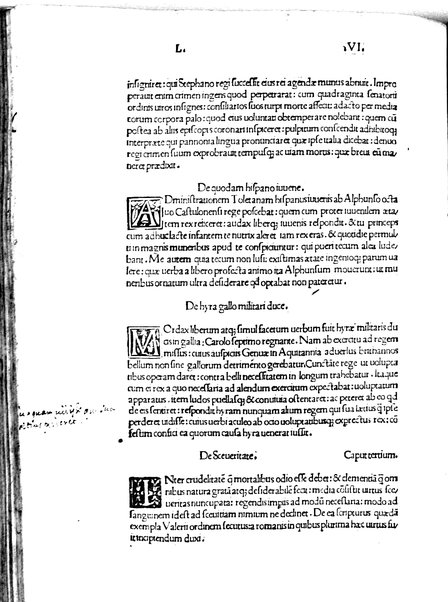 L. VI.
insigniret: qui Stephano regi successit eius rei agendæ munus abnuit. Impro
perauit enim crimen ingens quod perpetrarat: cum quadraginta senatorii
ordinis uiros insignes: consiliarios suos turpi morte affecit: adacto per media
eorum corpora palo: quod eius uoluntati obtemperare nolebant: quem cū
postea ab aliis episcopis coronari inspiceret: pulpitum conscendit adhibitoq;
interpræte qui pannonia lingua pronunciaret quæ ipse italia dicebat: denuo
regi crimen suum exprobrauit tempusq; ac uiam mortis: quæ breui eū ma/
neret prædixit.
De quodam hispano iuuene.
ADministrationem Toletanam hispanus iuuenis ab Alphunso octa
uo Castulonensi rege poscebat: quem cum propter iuuenilem æta/
tem rex reiceret: audax liberq; iuuenis respondit. & tu princeps
cum adhuc lacte infantem te nutrix aleret tam rexeras. & quotidie permul
ti in magnis muneribus apud te conspiciuntur: qui pueri tecum alea lude/
bant. Me autem quia tecum non lusi existimas ætate ingenioq; parum ua
lere: quæ uerba a libero profecta animo ita Alphunsum mouerunt: ut mu
neribus ornatum ultra desiderare qd optabat non pateretur.
De hyra gallo militari duce.
MOrdax liberum atq; simul facetum uerbum fuit hyræ militaris du
cis in gallia: Carolo septimo regnante. Nam ab exercitu ad regem
missus: cuius auspiciis Genuæ in Aquitannia aduersus brithannos
bellum non sine gallorum detrimēto gerebatur. Cunctate rege ut uolupta
tibus operam daret: contra belli necessitatem in longum trahebatur. Itaque
cum ex rege quæ necessaria ad alendum exercitum expectabat: uoluptatum
apparatus. item ludos puellasq; & conuiuia ostentaret: ac peteret ab eo qd
de eis sentiret: respondit hyram nunquam alium regem qui sua lætius q̄ ipse
perderet uidisse: cuius uerbi aculeo ab ocio uoluptatibusq; experrectus rex: cō
festim confici ea quorum causa hyra uenerat iussit.
De Seueritate. Caput tertium.
INter crudelitatē q̄ mortalibus odio esse debet: & clementiā q̄ om
nibus natura grata atq; desiderabilē secta: media cōsistit uirtus se/
ueritas nuncupata: regendis impiis ad modū necessaria: modo ad
sanguinem idest ad sæuitiam nimium ne declinet. De ea scripturus quædā
exempla Valerii ordinem secuturus a romanis in quibus plurima hæc uirtus fu/
it incipiendum duxi.